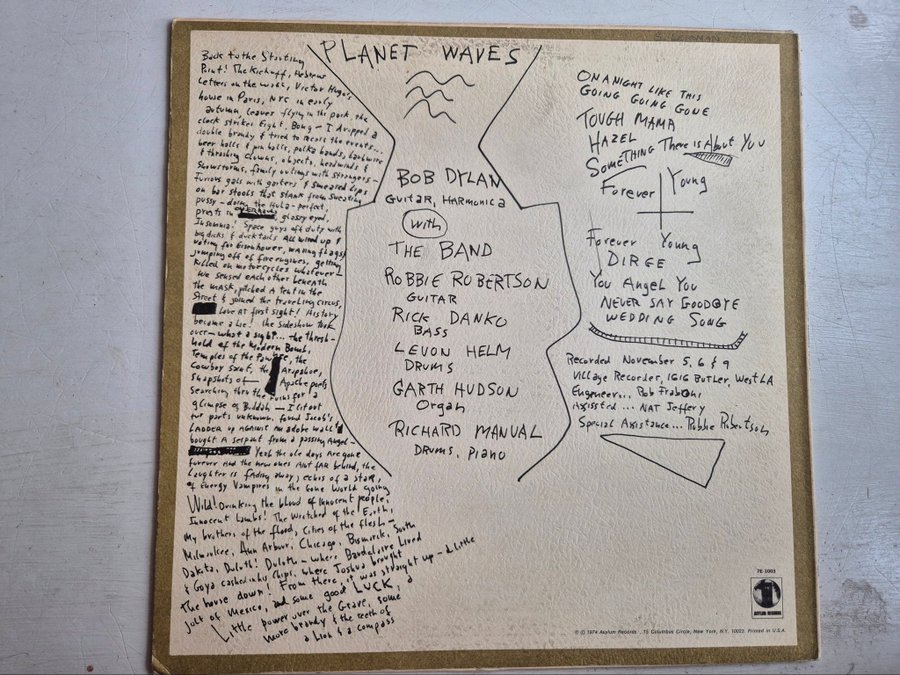 Back to the Starting
Point! The Kickoff, Hebrew
Letters on the wall, Victor Hugo's
house in Paris, NYC in early
autumn, leaves flying in the park, the
clock strikes Eight, Bong — I dropped a
double brandy & tried to recall the events...
beer halls & pin balls, polka bands, barbwire
& thrashing clowns, objects, headwinds &
snowstorms, family outings with strangers —
Furious gals with garters & smeared lips
on bar stools that stank from sweating
pussy — doing the Hula — perfect,
priests in overhauls, glassy eyed,
Insomnia! Space guys off duty with
big dicks & ducktails All wired up &
voting for Eisenhower, waving flags &
jumping off of fire engines, getting
killed on motorcycles whatever —
We sensed each other beneath
the mask, pitched a tent in the
Street & joined the traveling circus,
Love at first sight! History
became a lie! the sideshow took
over — what a sight... the thresh-
hold of the Modern Bomb,
Temples of the Pawnee, the
Cowboy Saint, the Arapahoe,
Snapshots of Apache poets
searching thru the ruins for a
glimpse of Buddah — I lit out
for parts unknown, found Jacob's
LADDER up AGAINST AN adobe wall &
bought A serpent from a passing Angel —
Yeah the ole days Are gone
forever And the new ones Aint fAR behind, the
Laughter is fading away, echos of a staR,
of Energy Vampires in the Gone World going
Wild! Drinking the blood of innocent people,
Innocent Lambs! The Wretched of the Earth,
My brothers of the flood, Cities of the flesh —
Milwaukee, Ann Arbor, Chicago, Bismarck, South
Dakota, Duluth! Duluth — where Baudelaire Lived
& Goya cashed in his Chips, where Joshua brought
the house down! From there, it was straight up — A Little
jolt of Mexico, and some good LUCK, a
Little power over the Grave, some
more brandy & the teeth of
a Lion & a compass
PLANET WAVES
BOB DYLAN
GUITAR, HARMONICA
with
THE BAND
ROBBIE ROBERTSON
GUITAR
RICK DANKO
BASS
LEVON HELM
DRUMS
GARTH HUDSON
Organ
RICHARD MANUAL
DRUMS, PIANO
ON A NIGHT LIKE THIS
GOING GOING GONE
TOUGH MAMA
HAZEL
SOMETHING There is About You
Forever Young
Forever Young
DIRGE
You Angel You
NEVER SAY GOODBYE
WEDDING SONG
Recorded November 5, 6 & 9
Village Recorder, 1616 BUTLER, West LA
Engeneer... Rob Fraboni
Assisted... NAT Jeffery
Special Assistance... Robbie Robertson
7E-1003
ASYLUM RECORDS
℗ © 1974 Asylum Records . 15 Columbus Circle, New York, N.Y. 10023. Printed in U.S.A.